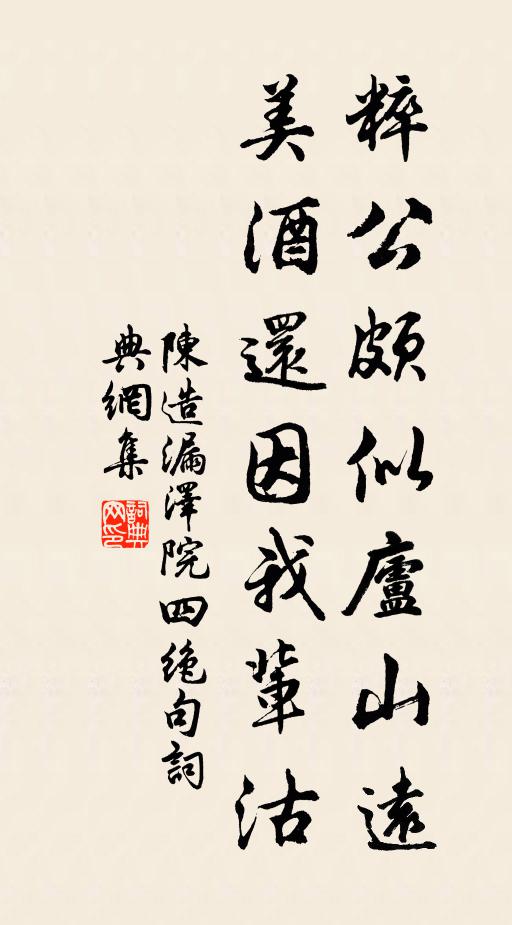 粹公頗似廬山遠
美酒還因我輩沽
陳造漏澤院四絶句詞
典網集
詞典网印